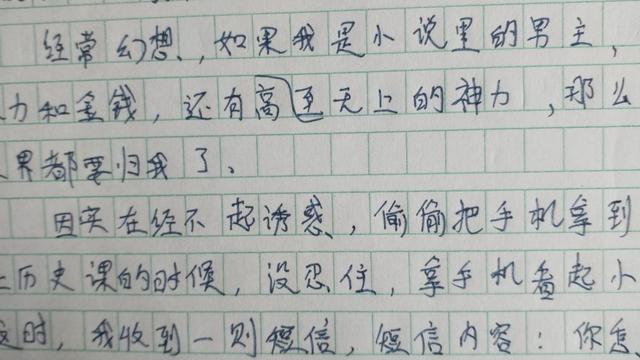 经常幻想，如果我是小说里的男主，
力和金钱，还有高至无上的神力，那么
界都要归我了。
因实在经不起诱惑，偷偷把手机拿到
上历史课的时候，没忍住，拿手机看起小
这时，我收到一则短信，短信内容：你